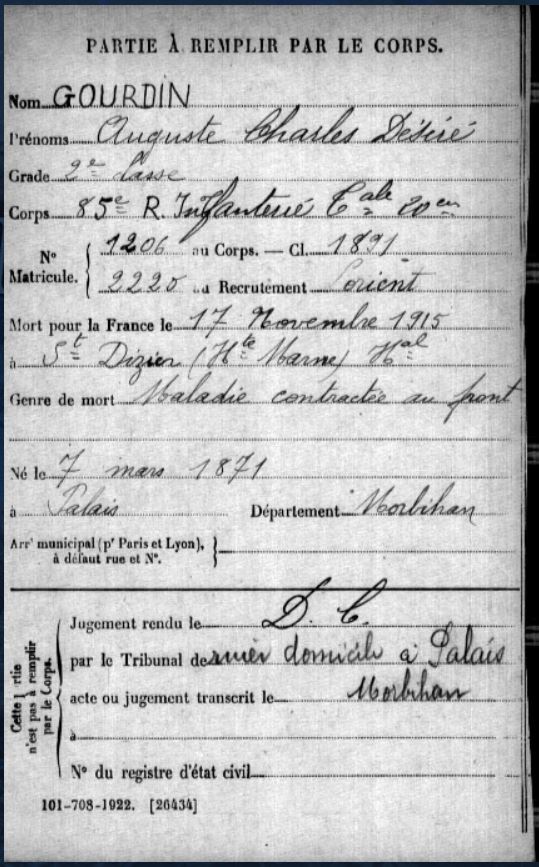 PARTIE À REMPLIR PAR LE CORPS.
Nom GOURDIN
Prénoms Auguste Charles Désiré
Grade 2e Classe
Corps 85e R. Infanterie Cale 20em
Nº Matricule. { 1206 au Corps. — Cl. 1891
2220 au Recrutement Lorient
Mort pour la France le 17 Novembre 1915
à St Dizier (Hte Marne) Hal
Genre de mort Maladie contractée au front
Né le 7 mars 1871
à Palais Département Morbihan
Arrt municipal (pr Paris et Lyon), à défaut rue et Nº. }
Cette partie n'est pas à remplir par le Corps. {
Jugement rendu le D. C.
par le Tribunal de rnier domicile à Palais
acte ou jugement transcrit le Morbihan
à
Nº du registre d'état civil
101-708-1922. [26434]